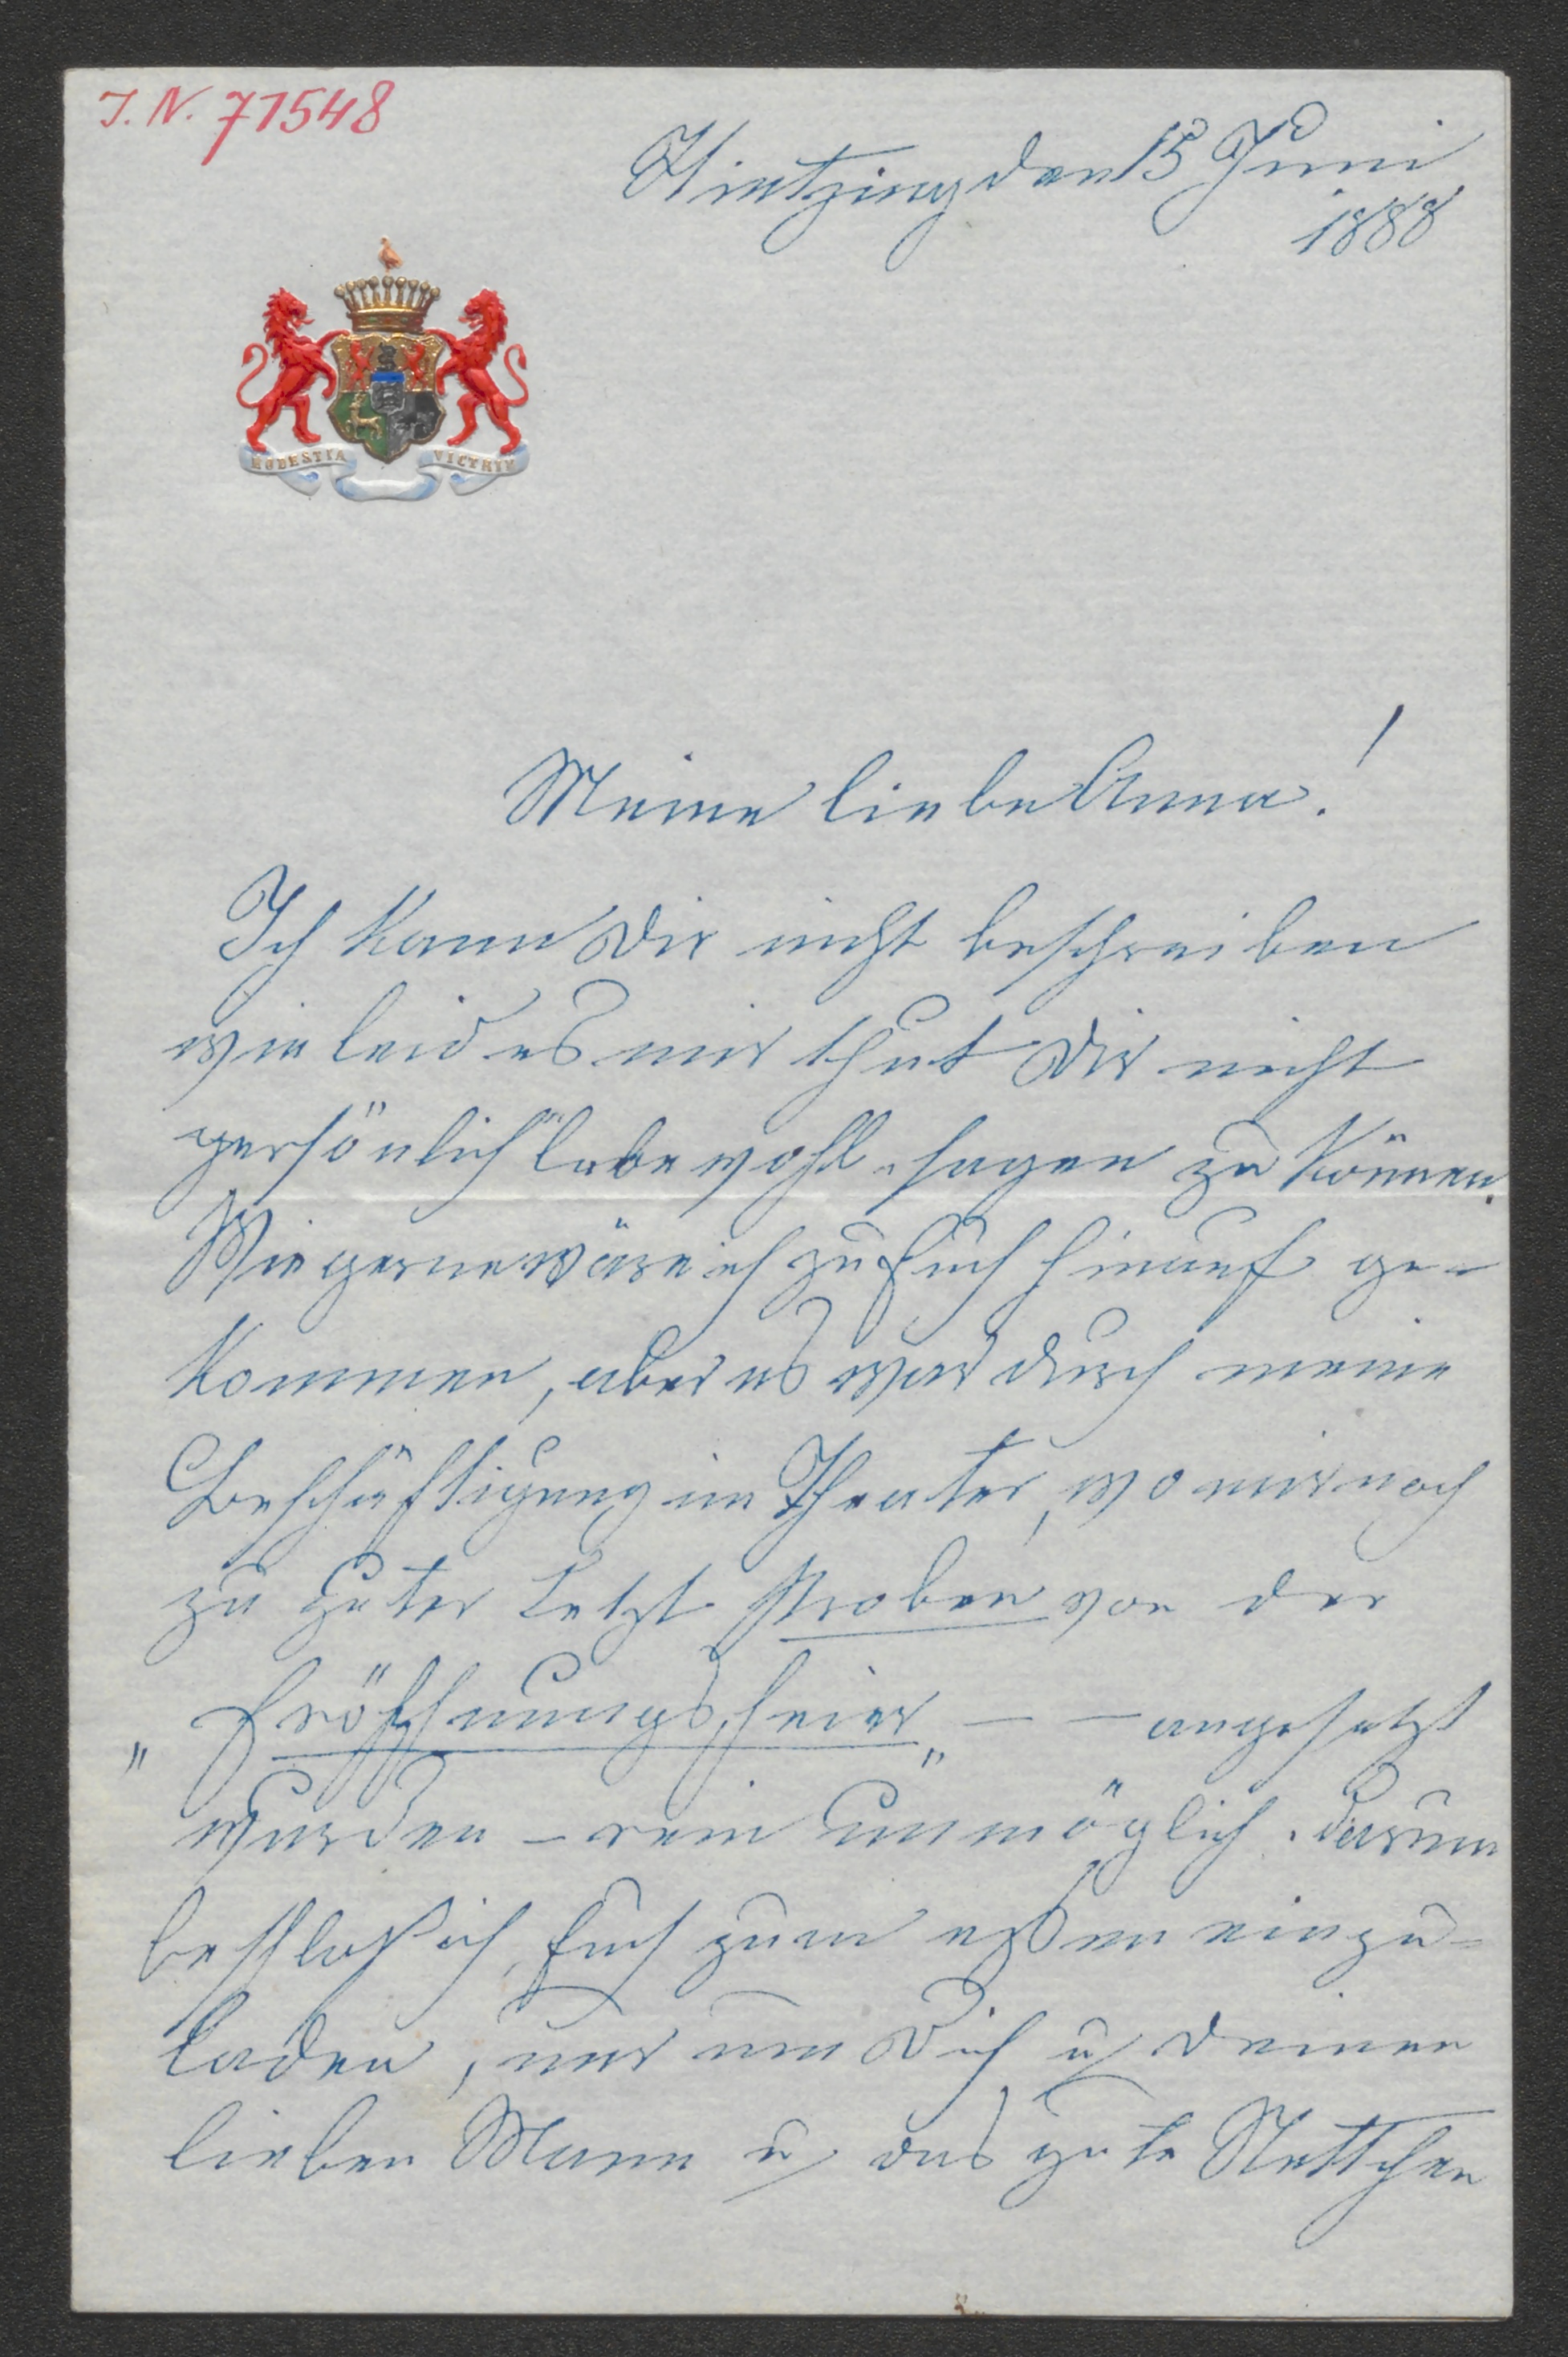 I. N. 71548
Hietzing den 15 Juni
1888
MODESTIA VICTRIX
Meine liebe Anna!
Ich kann Dir nicht beschreiben
wie leid es mir thut Dir nicht
persönlich „lebewohl„ sagen zu können.
Wie gerne wäre ich zu Euch hinauf ge-
kommen, aber es war durch meine
Beschäftigung im Theater, wo mir noch
zu guter Letzt Proben von der
„Eröffnungsfeier„ — — angesetzt
wurden – rein unmöglich. Darum
beschloß ich, Euch zum eßen einzu-
laden, nur um Dich u deinen
lieben Mann u das gute Nettchen